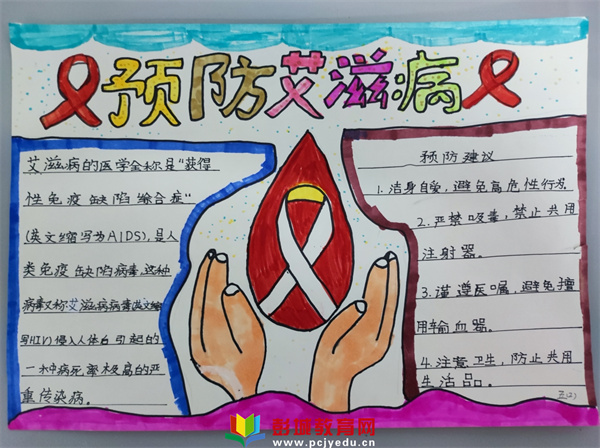 预防艾滋病
艾滋病的医学全称是"获得
性免疫缺陷综合症"
(英文缩写为AIDS),是人
类免疫缺陷病毒这种
病毒又称艾滋病病毒英文缩
写HIV)侵入人体引起的
一种病死率极高的严
重传染病。
预防建议
1.洁身自爱,避免高危性行为
2.严禁吸毒,禁止共用
注射器。
3.谨遵医嘱,避免擅
用输血器。
4.注意卫生,防止共用
生活品。
五(2)
彭城教育网
www.pcjyedu.cn